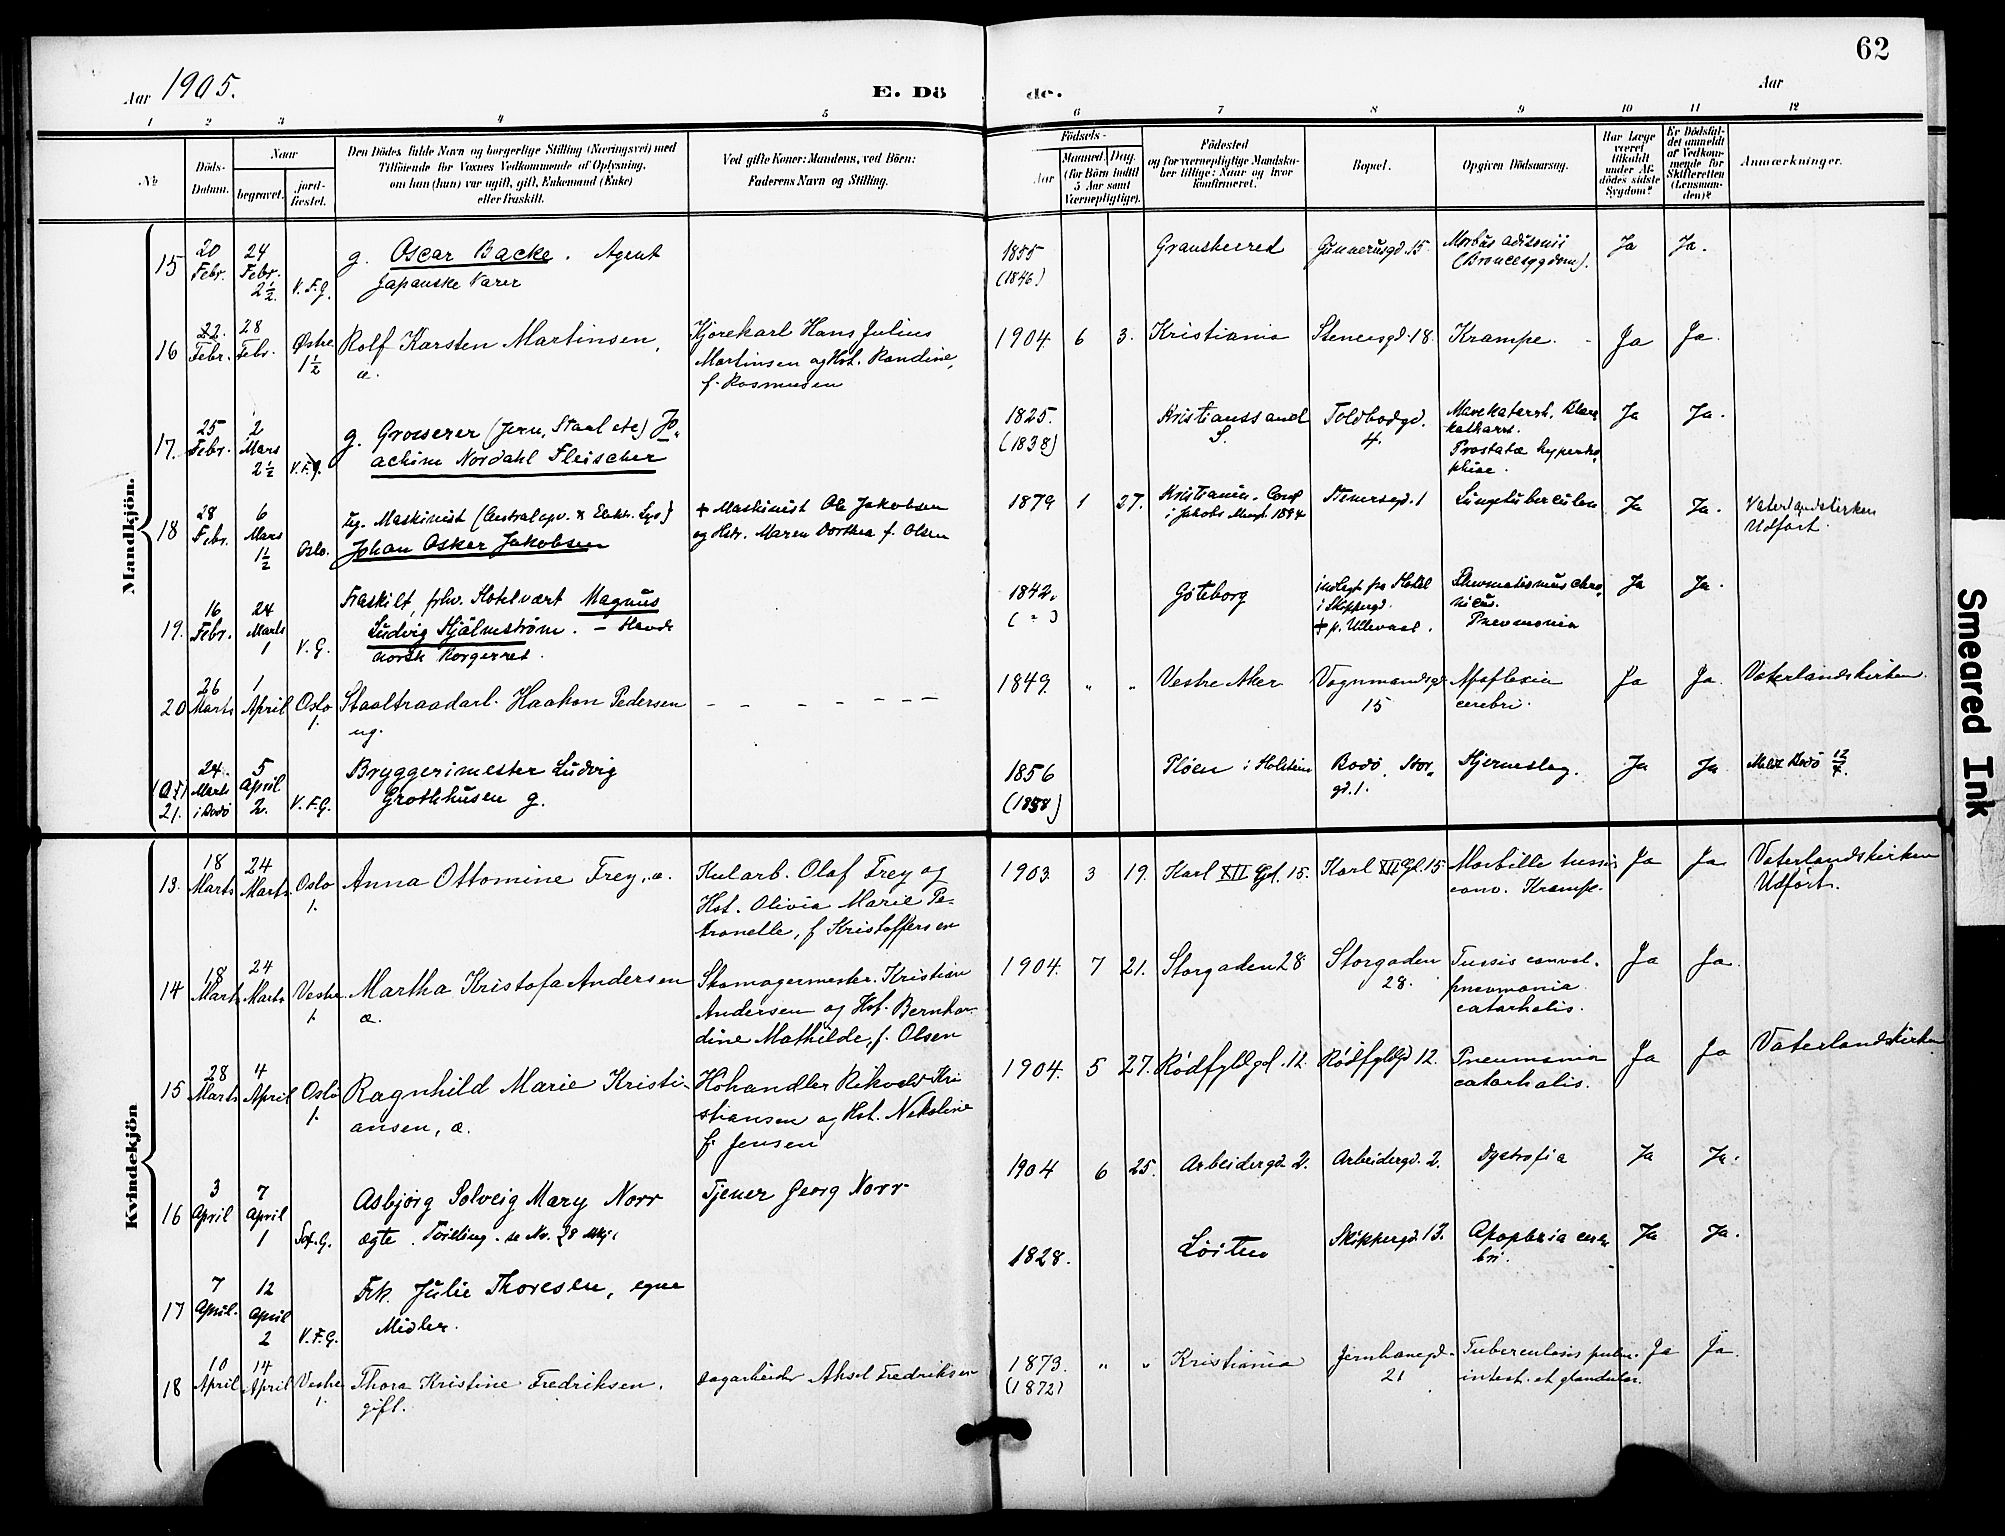 62
Aar 1905.
E. Dö
de.
Aar
1 2 3 4 5 6 7 8 9 10 11 12
№
Döds-
Datum.
Naar
begravet.
jord-
fæstet.
Den Dödes fulde Navn og borgerlige Stilling (Næringsvei) med
Tilföiende for Voxnes Vedkommende af Oplysning,
om han (hun) var ugift, gift, Enkemand (Enke)
eller fraskilt.
Ved gifte Koner: Mandens, ved Börn:
Faderens Navn og Stilling.
Födsels-
Aar
Maaned. Dag.
(for Börn indtil
5 Aar samt
Værnepligtige).
Födested
og for værnepligtige Mandska-
ber tillige: Naar og hvor
konfirmeret.
Bopæl.
Opgiven Dödsaarsag.
Har Læge
været
tilkaldt
under Af-
dödes sidste
Sygdom?
Er Dödsfal-
det anmeldt
af Vedkom-
mende for
Skifteretten
(Lensman-
den)?
Anmærkninger.
Mandkjön.
15
20
Febr.
24
Febr.
2½
V.F.G.
g. Oscar Backe. Agent
Japanske Varer
1855
(1846)
Gransherred
Gunnerusgd. 15
Morbus adisonii
(Broncesygdom).
Ja
Ja.
16
22.
Febr.
28
Febr.
Østre
1½
Rolf Karsten Martinsen,
æ.
Kjørekarl Hans Julius
Martinsen og Hst. Randine,
f. Rasmusen
1904. 6 3.
Kristiania
Stenersgd. 18.
Krampe.
Ja
Ja.
17.
25
Febr.
2
Mars
2½
V.F.G.
g. Grosserer (Jern, Staal etc) Jo-
achim Nordahl Fleischer
1825.
(1838)
Kristianssand
S.
Toldbodgd.
4.
Mavekatarrh.
Prostatæ
Ja
Ja.
18
28
Febr.
6
Mars
1½
Oslo.
ug. Maskinist
Johan Oskar Jakobsen
+ Maskinist Ole Jakobsen
og Hstr. Maren Dorthea f. Olsen
1879 1 27.
Kristiania.
i Jakobs
Stenersgd. 1
Lungetuberculose
Ja
Ja.
Vaterlandskirken
Udført.
19.
16
Febr.
24
Marts
1
V.G.
Fraskilt, frhv. Hotelvært Magnus
Ludvig Hjälmstrøm. – Havde
norsk Borgerret.
1842.
( " )
Göteborg
indlagt fra Hotel
i Skippergd.
+ p. Ullevaal.
Rheumatismus chro-
nicus.
Pneumonia
Ja
Ja.
20
26
Marts
1
April
Oslo
1.
Staaltraadarb. Haakon Pedersen
ug.
– – – – – – –
1849. " "
Vestre Aker
Vognmandsgd
15
Apoplexia
cerebri.
Ja
Ja.
Vaterlandskirken.
21.
24.
Marts
i Bodø
5
April
2.
V.F.G.
Bryggerimester Ludvig
Grothhusen g.
1856
(1858)
Pløen i Holstein
Bodø, Stor-
gd. 1.
Hjerneslag.
Ja
Ja
Meldt Bodø 12/4.
Kvindekjön
13.
18
Marts
24
Marts
Oslo
1.
Anna Ottomine Frey, æ.
Kularb. Olaf Frey og
Hst. Olivia Marie Pe-
tronelle, f Kristoffersen
1903 3 19.
Karl XII Gd. 15.
Karl XII Gd. 15
Morbille tussis
conv. Krampe.
Ja
Ja
Vaterlandskirken
Udført.
14
18
Mart
24
Marts
Vestre
1.
Martha Kristofa Andersen
æ.
Skomagermester Kristian
Andersen og Hst. Bernhar-
dine Mathilde, f. Olsen
1904. 7 21.
Storgaden 28
Storgaden
28.
Tussis convul.
pneumonia
catarhalis.
Ja
Ja.
15
28
Marts
4
April
Oslo
1.
Ragnhild Marie Kristi-
ansen, æ.
Høhandler Rikvold Kri
stiansen og Hst. Nikoline
f. Jensen
1904. 5 27.
Rødfyldgd. 12.
Rødfyldgd 12.
Pneumonia
catarhalis.
Ja
Ja
Vaterlandskirken
16
3
April
7
April
1
Sof.G.
Asbjørg Solveig Mary Norr
ægte. Tvilling. se No. 28 Mkj.
Tjener Georg Norr
1904 6 25.
Arbeidergd 2.
Arbeidergd. 2.
Dystrofia
Ja
Ja.
17
7
April.
12
April
2
V.F.G.
Frk. Julie Thoresen, egne
Midler.
1828.
Löiten
Skippergd. 13.
Apoplexia cere-
bri.
Ja
Ja.
18
10
April
14
April
Vestre
1.
Thora Kristine Fredriksen.
gift.
Dagarbeider Aksel Fredriksen
1873. " "
(1872)
Kristiania
Jernbanegd.
21
Tuberculosis pulm.
intest. et glandular.
Ja
Ja.
Smeared Ink